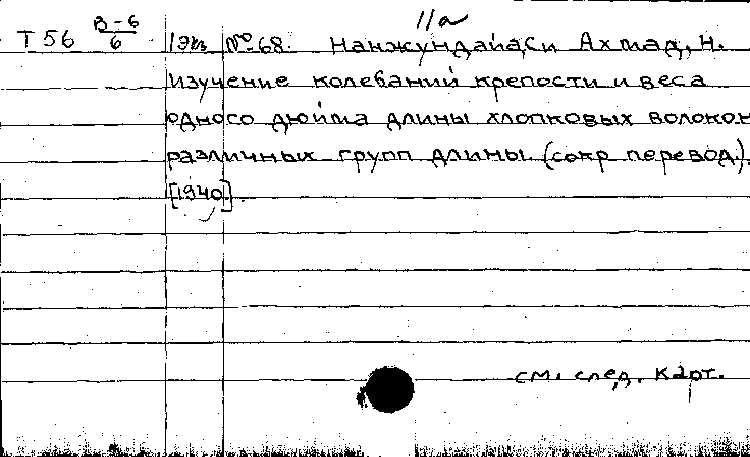 11а
Т 56 В-6/6 1экз №68. Нанжундайа, Си Ахмад, Н.
Изучение колебаний крепости и веса
одного дюйма длины хлопковых волокон
различных групп длины. (сокр перевод.).
[1940.]
см. след. карт.